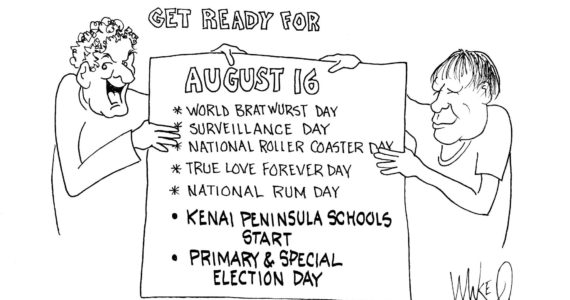 GET READY FOR
AUGUST 16
* WORLD BRATWURST DAY
* SURVEILLANCE DAY
* NATIONAL ROLLER COASTER DAY
* TRUE LOVE FOREVER DAY
* NATIONAL RUM DAY
• KENAI PENINSULA SCHOOLS
START
• PRIMARY & SPECIAL
ELECTION DAY